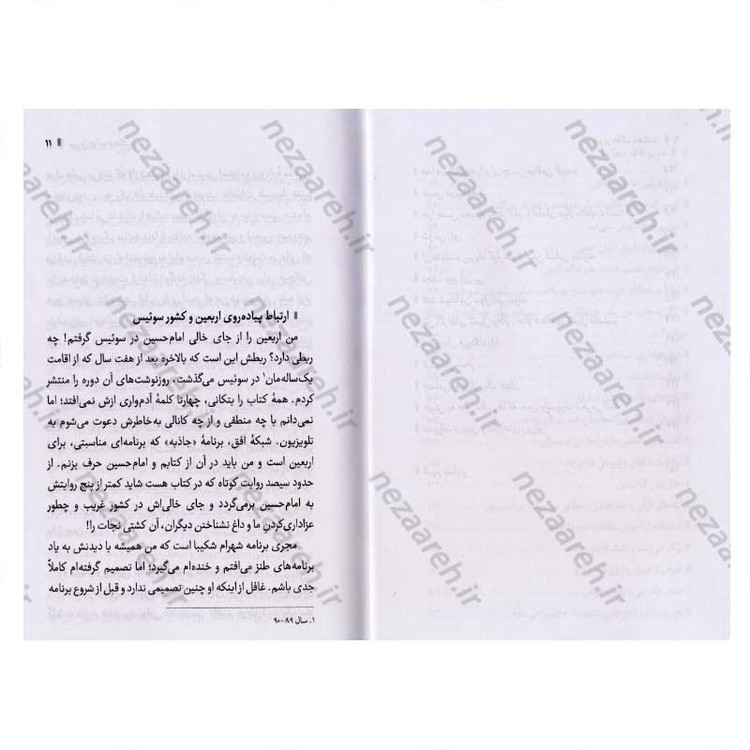 ۱۱
ارتباط پیاده‌روی اربعین و کشور سوئیس
من اربعین را از جای خالی امام‌حسین در سوئیس گرفتم! چه
ربطی دارد؟ ربطش این است که بالاخره بعد از هفت سال که از اقامت
یک‌ساله‌مان۱ در سوئیس می‌گذشت، روزنوشت‌های آن دوره را منتشر
کردم. همهٔ کتاب را بتکانی، چهارتا کلمهٔ آدم‌واری ازش نمی‌افتد؛ اما
نمی‌دانم با چه منطقی و از چه کانالی به‌خاطرش دعوت می‌شوم به
تلویزیون. شبکهٔ افق، برنامهٔ «جاذبه» که برنامه‌ای مناسبتی، برای
اربعین است و من باید در آن از کتابم و امام‌حسین حرف بزنم. از
حدود سیصد روایت کوتاه که در کتاب هست شاید کمتر از پنج روایتش
به امام‌حسین برمی‌گردد و جای خالی‌اش در کشور غریب و چطور
عزاداری‌کردنِ ما و داغ نشناختن دیگران، آن کشتی نجات را!
مجری برنامه شهرام شکیبا است که من همیشه با دیدنش به یاد
برنامه‌های طنز می‌افتم و خنده‌ام می‌گیرد؛ اما تصمیم گرفته‌ام کاملاً
جدی باشم. غافل از اینکه او چنین تصمیمی ندارد و قبل از شروع برنامه
۱. سال ۸۹-۹۰
nezaareh.ir